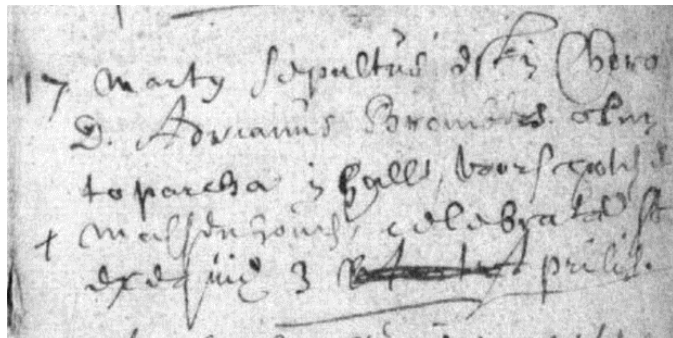 17 Marty sepultus est in Choro
D. Adrianus Bromans olim
toparcha in Hall, voorschoten
+ celebratae st
exequiae 3 prilis.